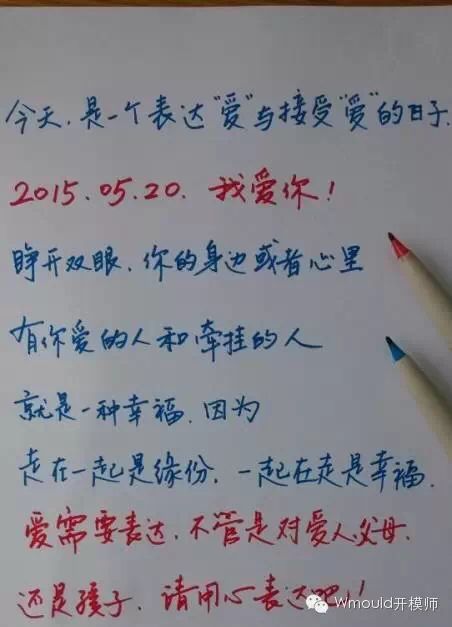 今天.是一个表达"爱"与接受"爱"的日子.
2015.05.20.我爱你!
睁开双眼.你的身边或者心里
有你爱的人和牵挂的人
就是一种幸福.因为
走在一起是缘份.一起在走是幸福.
爱需要表达.不管是对爱人.父母.
还是孩子.请用心表达吧!!
Wmould开模师